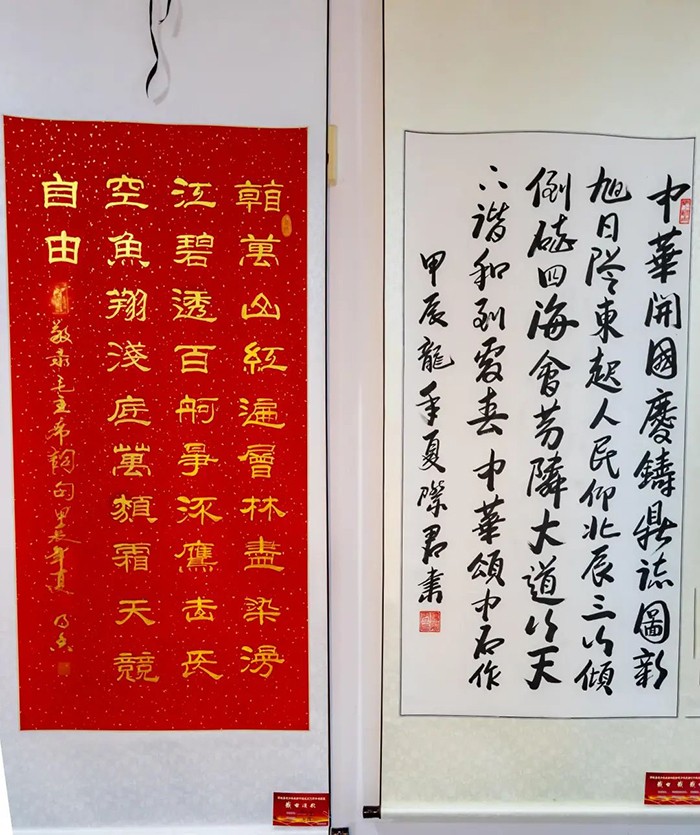 看萬山紅遍層林盡染漫
江碧透百舸爭流鷹击長
空魚翔淺底萬類霜天競
自由
敬录毛主席詞句 甲辰年夏
中華開國慶鑄鼎誌圖新
旭日陞東起人民仰北辰三山傾
倒四海會芳隣大道行天
下諧和到處春中華頌中石作
甲辰龍年夏際君書